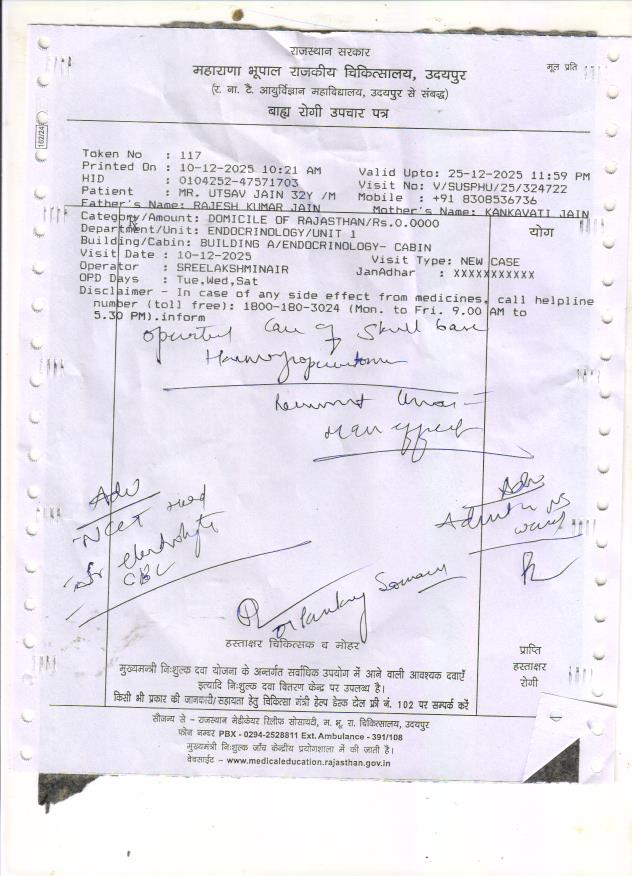 राजस्थान सरकार
महाराणा भूपाल राजकीय चिकित्सालय, उदयपुर
मूल प्रति
(र. ना. टै. आयुर्विज्ञान महाविद्यालय, उदयपुर से संबद्ध)
बाह्य रोगी उपचार पत्र
162/24
Token No : 117
Printed On : 10-12-2025 10:21 AM Valid Upto: 25-12-2025 11:59 PM
HID : 0104252-47571703 Visit No: V/SUSPHU/25/324722
Patient : MR. UTSAV JAIN 32Y /M Mobile : +91 8308536736
Father's Name: RAJESH KUMAR JAIN Mother's Name: KANKAVATI JAIN
Category/Amount: DOMICILE OF RAJASTHAN/Rs.0.0000
योग
Department/Unit: ENDOCRINOLOGY/UNIT 1
Building/Cabin: BUILDING A/ENDOCRINOLOGY- CABIN
Visit Date : 10-12-2025 Visit Type: NEW CASE
Operator : SREELAKSHMINAIR JanAdhar : XXXXXXXXXXX
OPD Days : Tue,Wed,Sat
Disclaimer - In case of any side effect from medicines, call helpline
number (toll free): 1800-180-3024 (Mon. to Fri. 9.00 AM to
5.30 PM).inform
Operated Case of Skull base
Adv
NCCT Head
Sr electrolyte
CBC
Adv
Admit in
ward
हस्ताक्षर चिकित्सक व मोहर
प्राप्ति
हस्ताक्षर
रोगी
मुख्यमन्त्री निःशुल्क दवा योजना के अन्तर्गत सर्वाधिक उपयोग में आने वाली आवश्यक दवाएँ
इत्यादि निःशुल्क दवा वितरण केन्द्र पर उपलब्ध है।
किसी भी प्रकार की जानकारी/सहायता हेतु चिकित्सा मंत्री हेल्प डेस्क टोल फ्री नं. 102 पर सम्पर्क करें
सौजन्य से - राजस्थान मेडीकेयर रिलीफ सोसायटी, म. भू. रा. चिकित्सालय, उदयपुर
फोन नम्बर PBX - 0294-2528811 Ext. Ambulance - 391/108
मुख्यमंत्री निःशुल्क जाँच केन्द्रीय प्रयोगशाला में की जाती है।
वेबसाईट - www.medicaleducation.rajasthan.gov.in